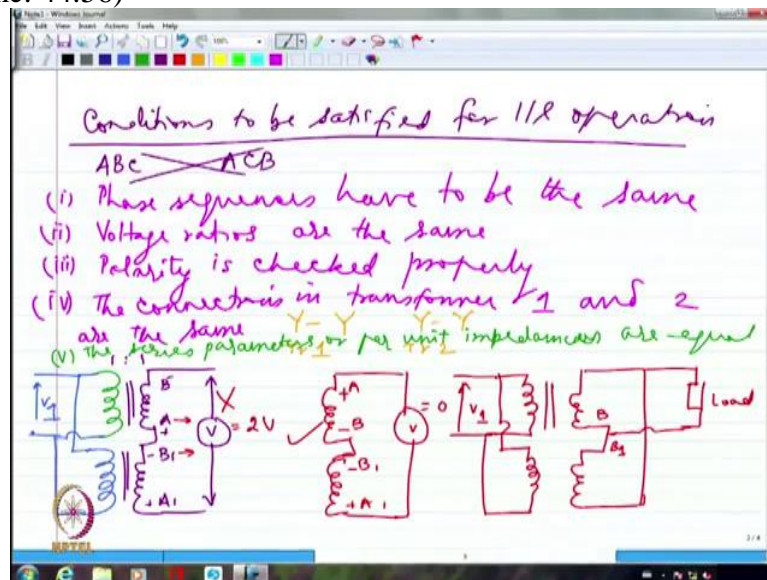 ne: 44:58)
Note1 - Windows Journal
File Edit View Insert Actions Tools Help
100%
Conditions to be satisfied for 11l operation
ABC ACB
(i) Phase sequences have to be the same
(ii) Voltage ratios are the same
(iii) Polarity is checked properly
(iv) The connections in transformer 1 and 2
are the same Y-Y Y-Y
Tr 1 Tr 2
(v) The series parameters or per unit impedances are equal
1:1
V1 B A + - B1 + A1 X V = 2V
+A -B -B1 +A1 V = 0
V1 B B1 Load
NPTEL
2/4